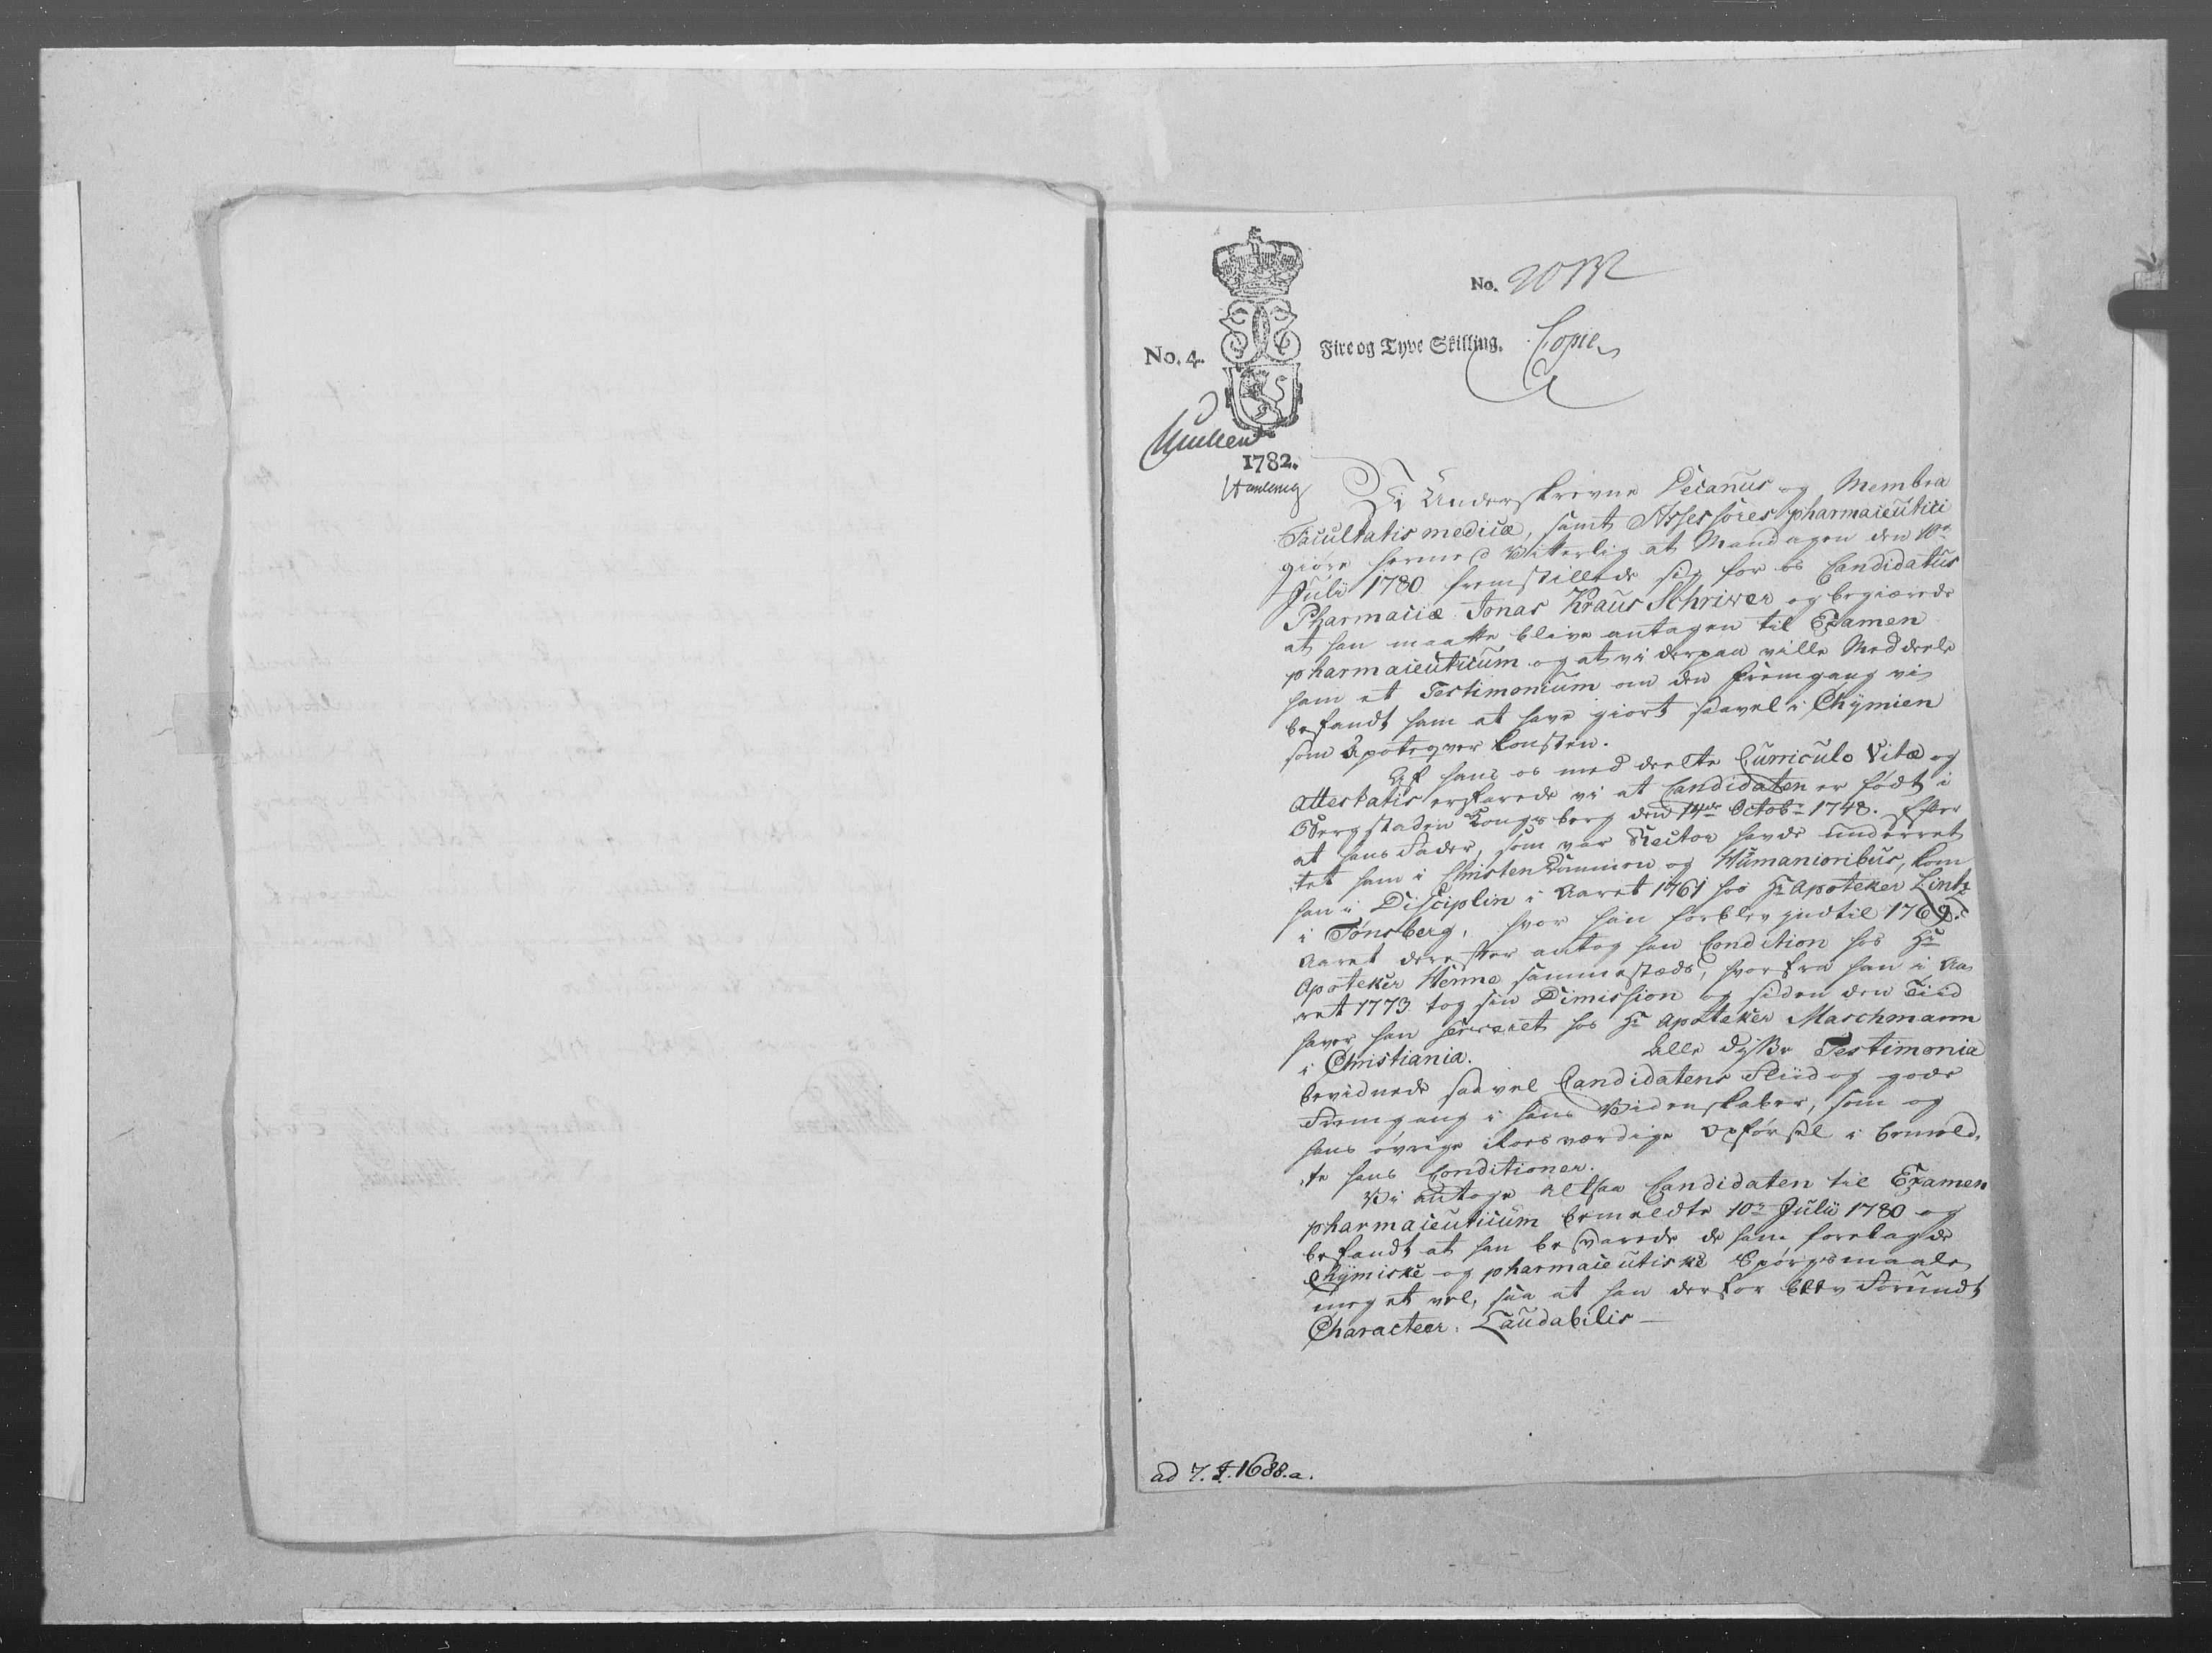 No.
No. 4. Fire og Tyve Skilling. Copie
1782.
Vi Underskrevne Decanus og Membra
Facultatis medicæ, samt Assessores pharmaceutici
giøre hermed Vitterlig at Mandagen den 10de
Julii 1780 fremstillede sig for os Candidatus
Pharmaciæ Jonas Kraus Schriwer og begiærede
at han maatte blive antagen til Examen
pharmaceuticum og at vi derpaa ville Meddeele
ham et Testimonium om den Fremgang vi
befandt ham at have giort saavel i Chymien
som Apoteqver Konsten.
Af hans os meddeelte Curriculo Vitæ og
Attestatis erfarede vi at Candidaten er født i
Bergstaden Kongsberg den 14de Octobr 1748. Efter
at hans Fader, som var Rector havde underret
tet ham i Christendommen og Humanioribus, kom
han i Disciplin i Aaret 1761 hos Hr Apoteker Lintz
i Tonsberg, hvor han forblev indtil 1769.
Aaret derefter antog han Condition hos Hr
Apoteker Henne sammestæds, hvorfra han i Aa
ret 1773 tog sin Dimission og siden den Tiid
haver han serveret hos Hr Apoteker Maschmann
i Christiania. Alle disse Testimonia
bevidnede saavel Candidatens Fliid og gode
Fremgang i hans Videnskaber, som og
hans øvrige Roesværdige Opførsel i bemeld,
te hans Conditioner.
Vi antoge altsaa Candidaten til Examen
pharmaceuticum bemeldte 10de Julii 1780 og
befandt at han besvarede de ham forelagde
Chymiske og pharmaceutiske Spørgsmaale
meget vel, saa at han derfor blev Forundt
Characteer. Laudabilis —
ad 7. J. 1688. a.